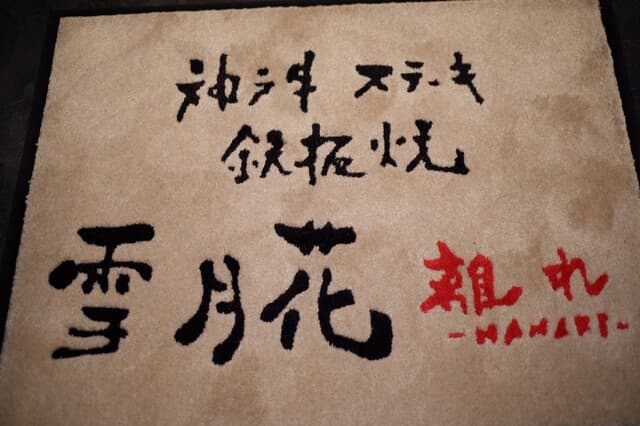 神戸牛 ステーキ
鉄板焼
雪月花 離れ
-HANARE-